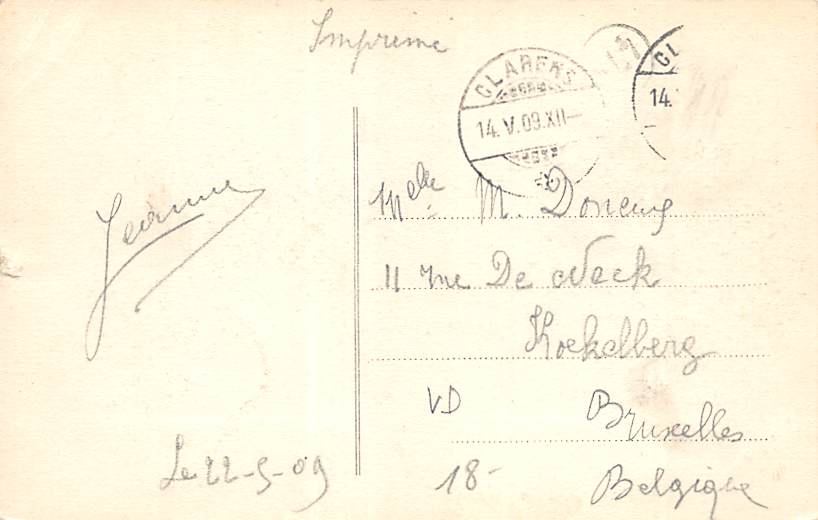 Imprimé
CLARENS
14.V.09.XII—
CL
14.
Jeanne
Melle M. Doneux
11 rue De Neck
Koekelberg
VD
Bruxelles
Le 22-5-09
18-
Belgique